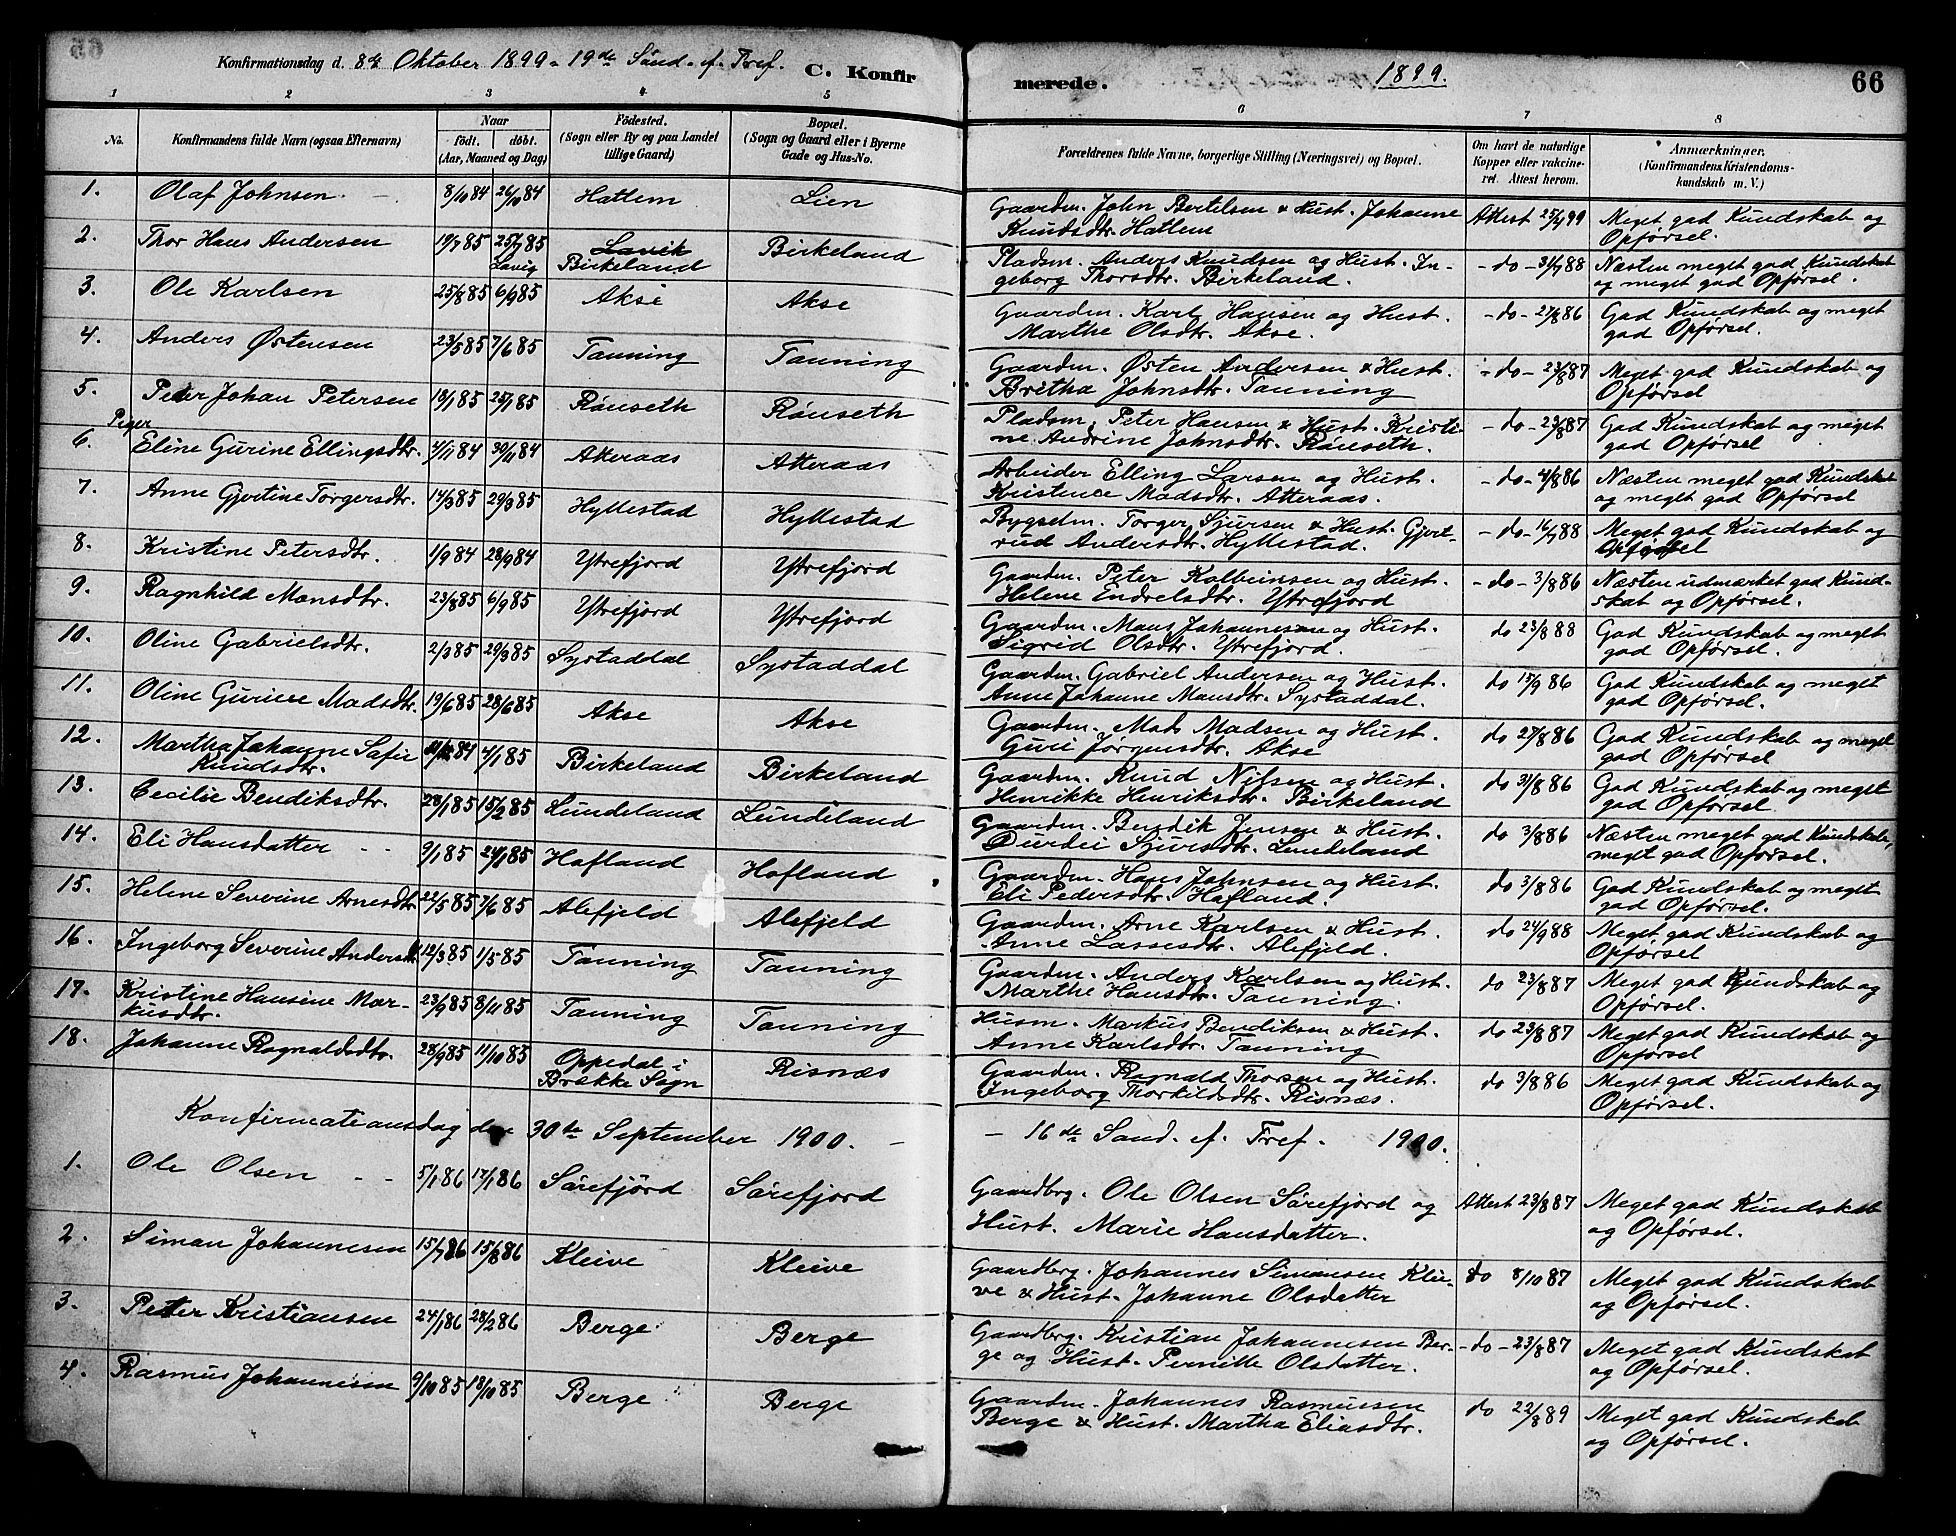 Konfirmationsdag d. 8de Oktober 1899 - 19de Sønd. ef. Tref. C. Konfir
merede. 1899. 66
1 2 3 4 5 6 7 8
No. Konfirmandens fulde Navn (ogsaa Efternavn) Naar født. døbt. (Aar, Maaned og Dag) Fødested. (Sogn eller By og paa Landet tillige Gaard) Bopæl. (Sogn og Gaard eller i Byerne Gade og Hus-No.
Forældrenes fulde Navne, borgerlige Stilling (Næringsvei) og Bopæl. Om havt de naturlige Kopper eller vakcineret. Attest herom. Anmærkninger. (Konfirmandens Kristendomskundskab m. V.)
1. Olaf Johnsen 8/10 84 26/10 84 Hattem Lien
Gaardm. John Bertelsen & Hust. Johanne Attest 25/99 Meget god Kundskab og
Knudsdtr. Hattem Opførsel.
2. Thor Hans Andersen 19/7 85 25/7 85 Lavig Lavik Birkeland Birkeland
Pladsm. Anders Knudsen og Hust. In- - do - 31/7 88 Næsten meget god Kundskab
geborg Thorsdtr. Birkeland. og meget god Opførsel.
3. Ole Karlsen 25/8 85 6/9 85 Akse Akse
Gaardm. Karl Hansen og Hust. - do - 27/8 86 God Kundskab og meget
Marthe Olsdtr. Akse. god Opførsel.
4. Anders Østensen 23/5 85 7/6 85 Tanning Tanning
Gaardm. Østen Andersen & Hust. - do - 23/8 87 Meget god Kundskab og
Britha Johnsdtr. Tanning Opførsel
5. Peter Johan Petersen 18/1 85 25/1 85 Rønseth Rønseth
Pladsm. Peter Hansen & Hust. Kristi- - do - 23/8 87 God Kundskab og meget
ne Andrine Johnsdtr. Rønseth. god Opførsel
Piger
6. Eline Gurine Ellingsdtr. 4/11 84 30/11 84 Atteraas Atteraas
Arbeider Elling Larsen og Hust. - do - 4/8 86 Næsten meget god Kundskab
Kristence Madsdtr. Atteraas. og meget god Opførsel
7. Anne Gjertine Torgersdtr. 14/3 85 29/3 85 Hyllestad Hyllestad
Bygselm. Torger Sjursen & Hust. Gjert- - do - 16/7 88 Meget god Kundskab og
rud Andersdtr. Hyllestad. Opførsel
8. Kristine Petersdtr. 1/9 84 28/9 84 Ytrefjord Ytrefjord
Gaardm. Peter Kolbeinsen og Hust. - do - 3/8 86 Næsten udmærket god Kund-
Helene Endrelsdtr. Ytrefjord skab og Opførsel.
9. Ragnhild Monsdtr. 23/8 85 6/9 85 Ytrefjord Ytrefjord
Gaardm. Mons Johannesen og Hust. do 23/8 88 God Kundskab og meget
Sigrid Olsdtr. Ytrefjord. god Opførsel.
10. Oline Gabrielsdtr. 2/3 85 29/3 85 Systaddal Systaddal
Gaardm. Gabriel Andersen og Hust. do 15/9 86 God Kundskab og meget
Anne Johanne Monsdtr. Systaddal. god Opførsel.
11. Oline Gurine Madsdtr. 19/6 85 28/6 85 Akse Akse
Gaardm. Mads Madsen og Hust. do 27/8 86 God Kundskab og meget
Guri Jørgensdtr. Akse god Opførsel
12. Martha Johanne Sofie 4/1 85 Birkeland Birkeland
Knudsdtr.
Gaardm. Knud Nilsen og Hust. do 31/8 86 God Kundskab og meget
Henrikke Henriksdtr. Birkeland god Opførsel.
13. Cecilie Bendiksdtr. 28/1 85 15/2 85 Lundeland Lundeland
Gaardm. Bendik Jensen & Hust. do 3/8 86 Næsten meget god Kundskab,
Durdei Sjursdtr. Lundeland meget god Opførsel.
14. Eli Hansdatter - - 9/1 85 24/1 85 Hofland Hofland
Gaardm. Hans Johnsen og Hust. do 3/8 86 God Kundskab og meget
Eli Pedersdtr. Hofland. god Opførsel.
15. Helene Severine Arnesdtr. 22/5 85 7/6 85 Alefjeld Alefjeld
Gaardm. Arne Karlsen & Hust. do 24/9 88 Meget god Kundskab og
Anne Lassesdtr. Alefjeld. Opførsel
16. Ingeborg Severine Andersdtr. 12/3 85 1/5 85 Tanning Tanning
Gaardm. Anders Karlsen og Hust. do 23/8 87 Meget god Kundskab og
Marthe Hansdtr. Tanning. Opførsel.
17. Kristine Hansine Mar- 23/9 85 8/11 85 Tanning Tanning
kusdtr.
Husm. Markus Bendiksen & Hust. do 23/8 87 Meget god Kundskab og
Anne Karlsdtr. Tanning Opførsel
18. Johanne Ragnaldsdtr. 28/9 85 11/10 85 Oppedal i Brække Sogn Risnæs
Gaardm. Ragnald Thorsen og Hust. do 3/8 86 Meget god Kundskab og
Ingeborg Thorkildsdtr. Risnæs. Opførsel.
Konfirmationsdag den 30te September 1900. - - 16de Sønd. ef. Tref. 1900.
1. Ole Olsen - - 5/1 86 17/1 86 Sørefjord Sørefjord
Gaardbrg. Ole Olsen Sørefjord og Attest 23/8 87 Meget god Kundskab
Hust. Marie Hansdatter. og Opførsel.
2. Simon Johannesen 15/7 86 15/8 86 Kleive Kleive
Gaardbrg. Johannes Simonsen Klei- do 8/10 87 Meget god Kundskab
ve & Hust. Johanne Olsdatter og Opførsel.
3. Peter Kristiansen 24/1 86 28/2 86 Berge Berge
Gaardbrg. Kristian Johannesen Ber- - do - 23/8 87 Meget god Kundskab
ge og Hust. Pernille Olsdatter. og Opførsel.
4. Rasmus Johannesen 9/10 85 18/10 85 Berge Berge
Gaardm. Johannes Rasmussen do 22/8 89 Meget god Kundskab
Berge & Hust. Martha Eliasdtr. og Opførsel.